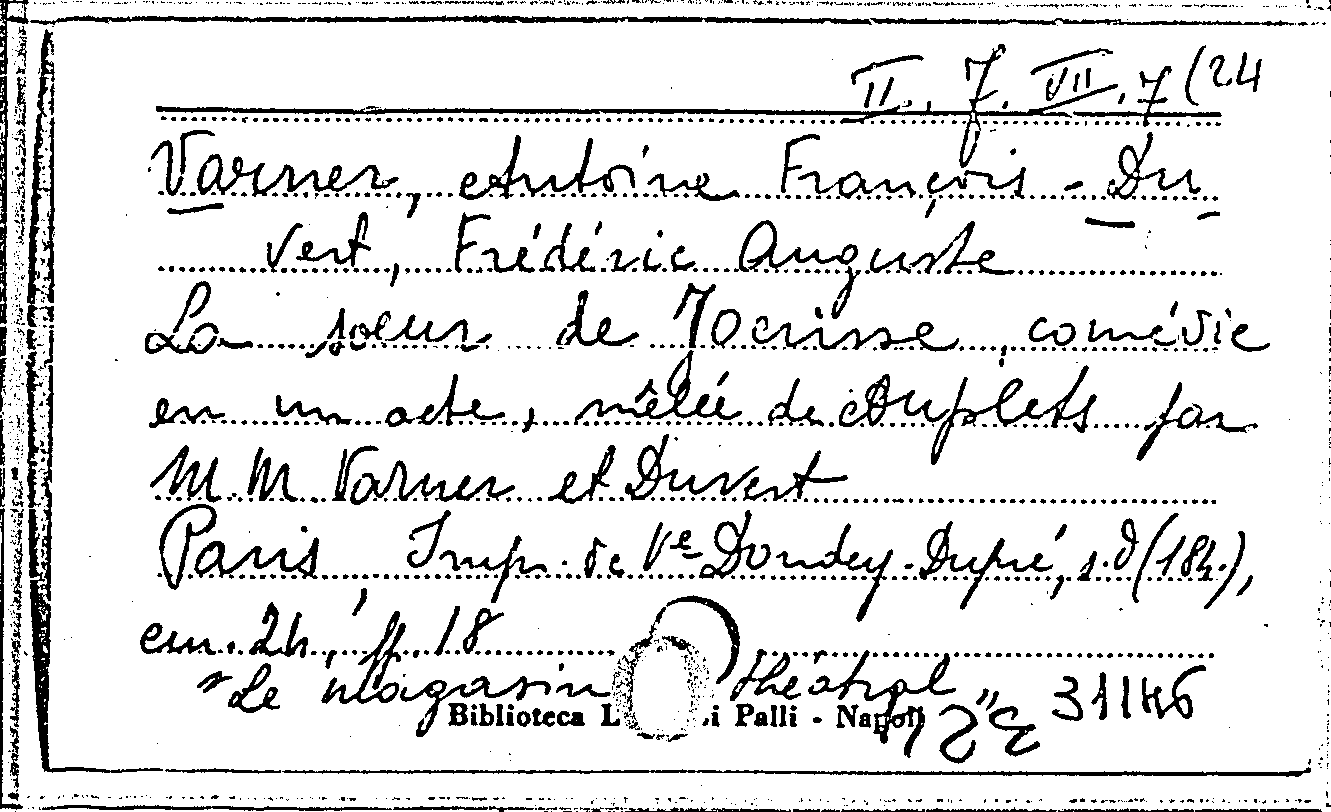 II. 7. VII. 7 (24
Varner, Antoine François - Du-
vert, Frédéric Auguste
La soeur de Jocrisse, comédie
en un acte, mêlée de couplets par
M.M. Varner et Duvert
Paris, Imp. de Ve Dondey-Dupré, s.d (184.),
cm. 24, pp. 18
"Le magasin théatral"
Biblioteca L i Palli - Napoli
31146